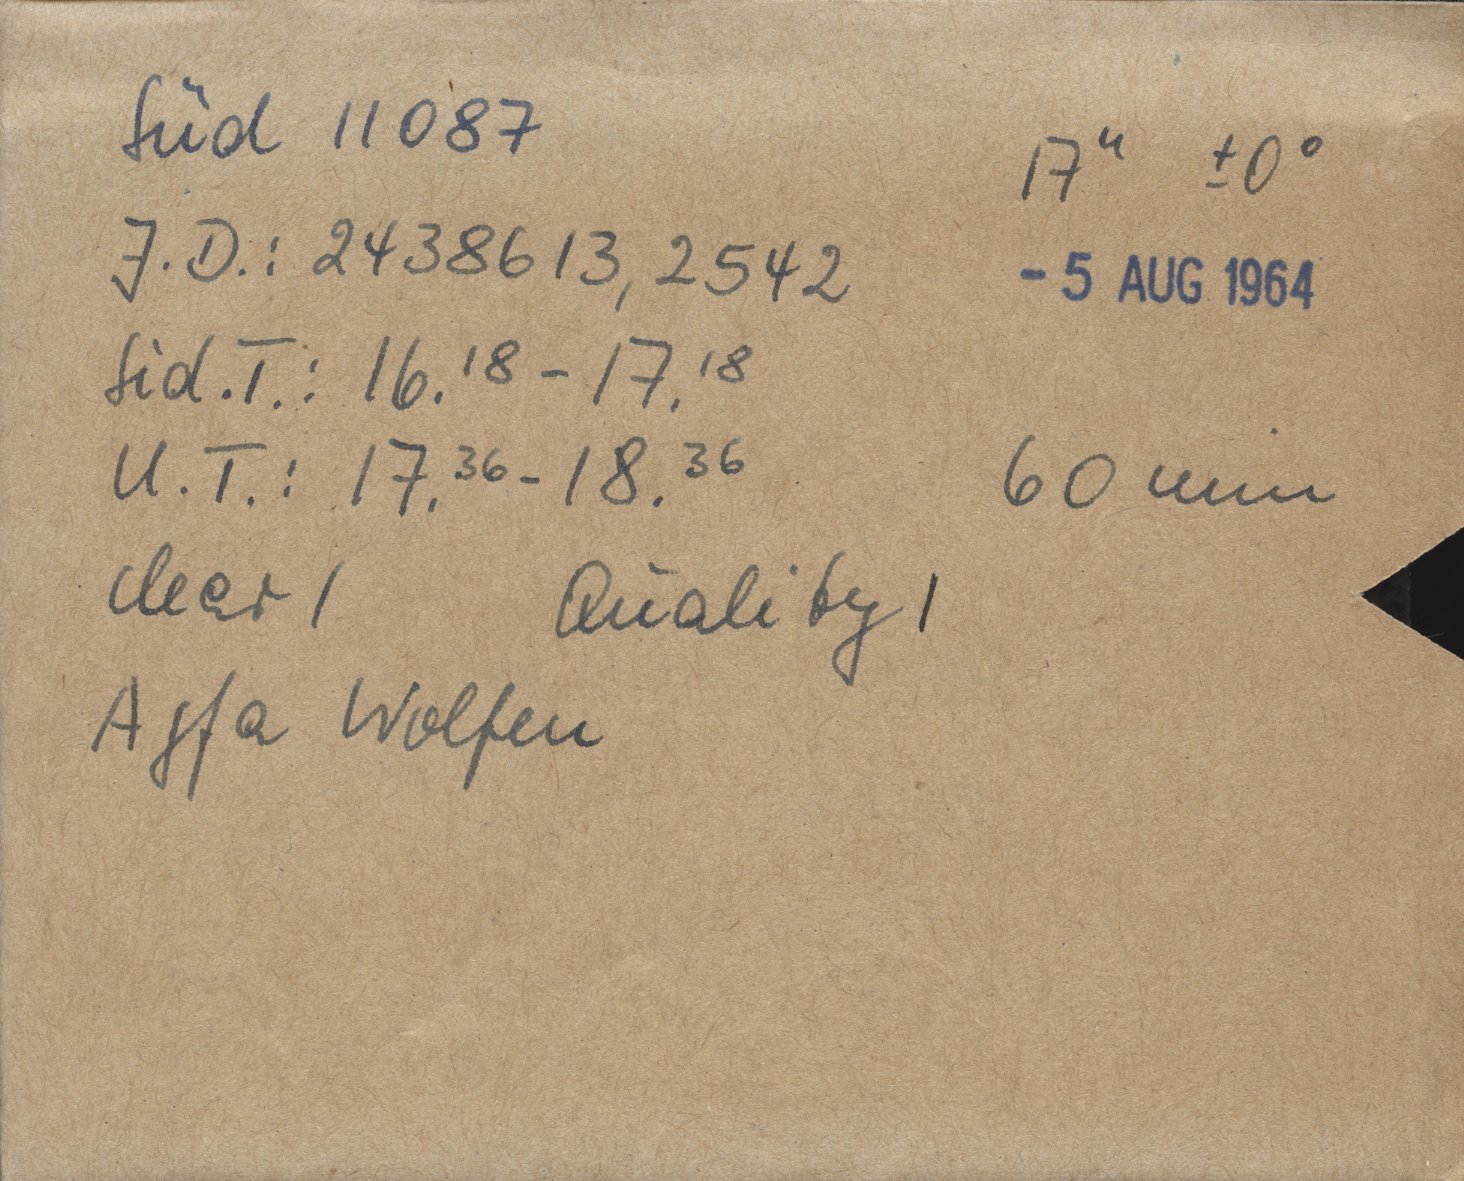 Süd 11087
17ʰ ±0°
J.D.: 2438613,2542
- 5 AUG 1964
Sid.T.: 16.¹⁸ - 17.¹⁸
U.T.: 17.³⁶ - 18.³⁶
60 min
clear 1 Quality 1
Agfa Wolfen